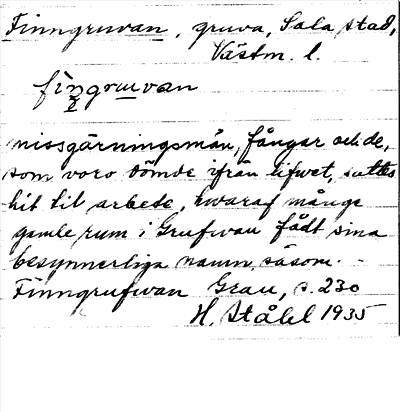 Finngruvan, gruva, Sala stad,
Västm. l.
fìngruvan
missgärningsmän, fångar och de,
som voro dömde ifrån lifwet, sattes
hit til arbete, hwaraf många
gamle rum i Grufwan fådt sina
besynnerliga namn, såsom. -
Finngrufwan Grau, s. 230
H. Ståhl 1935